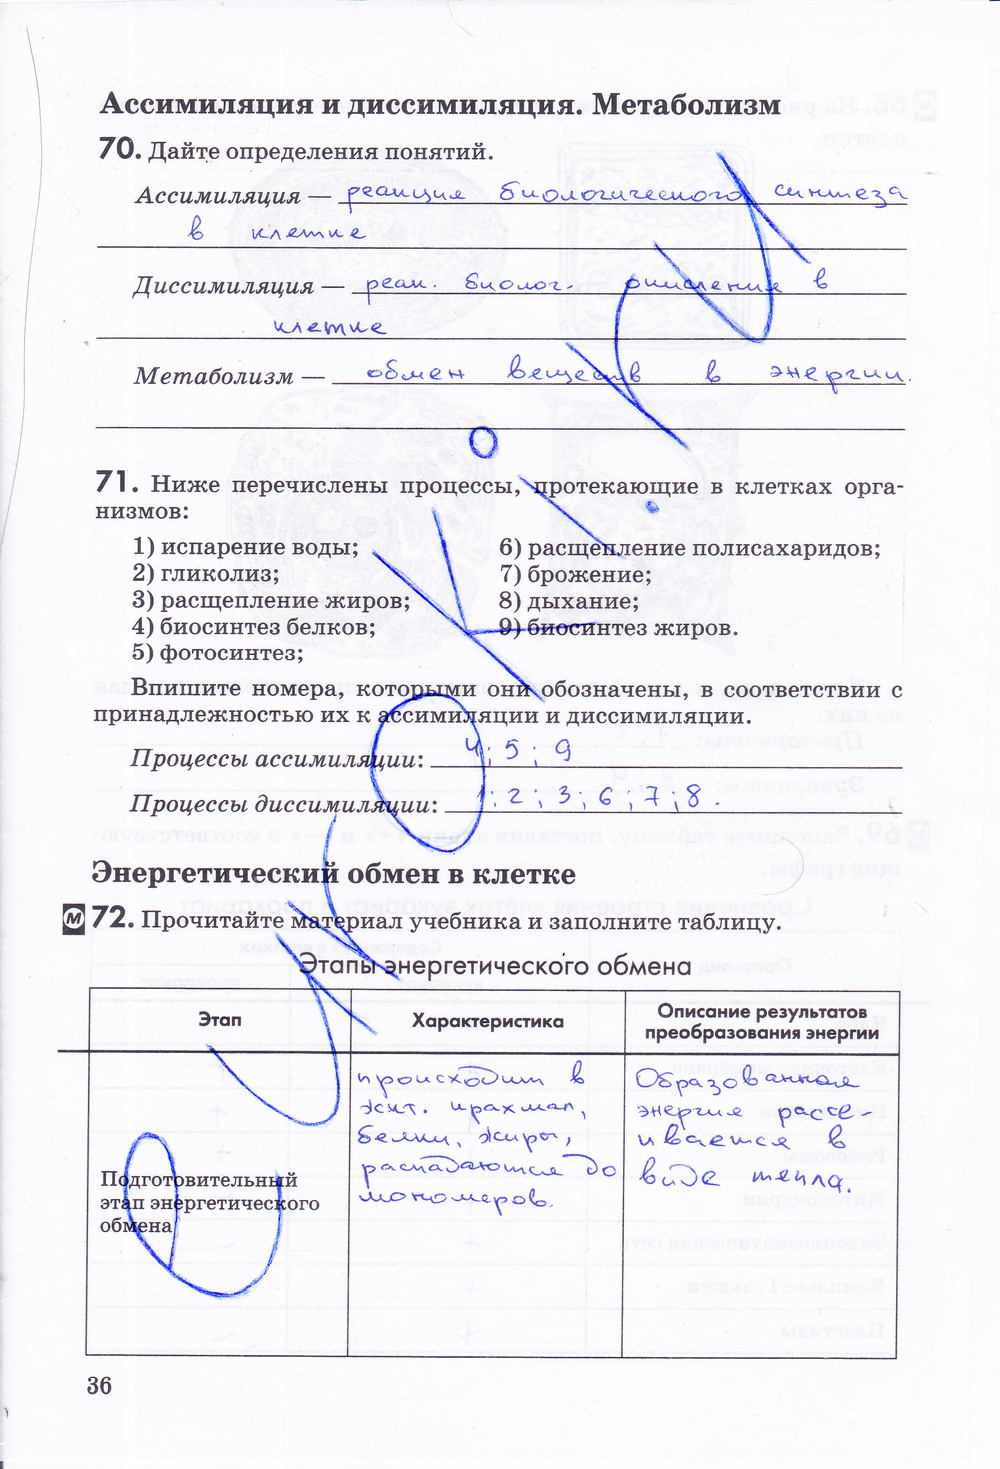 Ассимиляция и диссимиляция. Метаболизм
70. Дайте определения понятий.
Ассимиляция — реакция биологического синтеза
в клетке
Диссимиляция — реак. биолог. окисления в
клетке
Метаболизм — обмен веществ в энергии.
71. Ниже перечислены процессы, протекающие в клетках орга-
низмов:
1) испарение воды;
2) гликолиз;
3) расщепление жиров;
4) биосинтез белков;
5) фотосинтез;
6) расщепление полисахаридов;
7) брожение;
8) дыхание;
9) биосинтез жиров.
Впишите номера, которыми они обозначены, в соответствии с
принадлежностью их к ассимиляции и диссимиляции.
Процессы ассимиляции: 4; 5; 9
Процессы диссимиляции: 1; 2; 3; 6; 7; 8.
Энергетический обмен в клетке
М 72. Прочитайте материал учебника и заполните таблицу.
Этапы энергетического обмена
Этап
Характеристика
Описание результатов
преобразования энергии
Подготовительный
этап энергетического
обмена
происходит в
жкт. крахмал,
белки, жиры,
распадаются до
мономеров.
Образованная
энергия рассе-
ивается в
виде тепла.
36